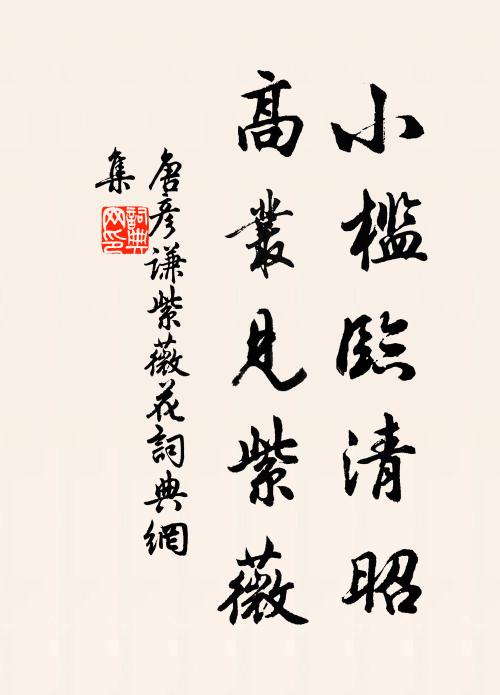 小檻臨清昭
高叢見紫薇
唐彦謙紫薇花詞典網
集
詞典
网印